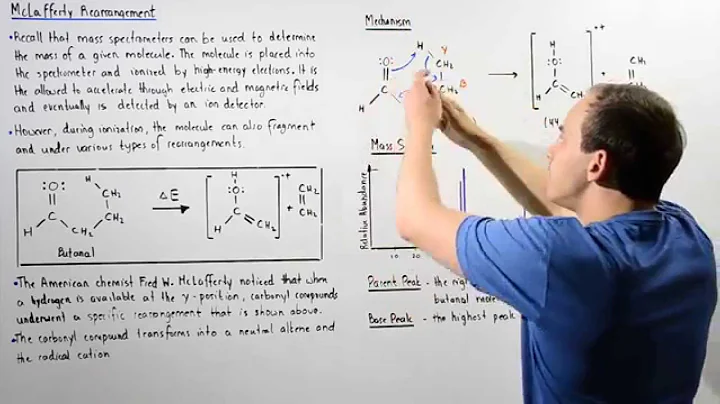 McLafferty Rearrangement
• Recall that mass spectrometers can be used to determine
the mass of a given molecule. The molecule is placed into
the spectrometer and ionized by high-energy electrons. It is
the allowed to accelerate through electric and magnetic fields
and eventually is detected by an ion detector.
• However, during ionization, the molecule can also fragment
and under various types of rearrangements.
:O:
H
CH₂
CH₂
C
H
CH₂
Butanal
ΔE
H
:O:
C
CH₂
H
·+
+
CH₂
CH₂
• The American chemist Fred W. McLafferty noticed that when
a hydrogen is available at the γ-position, carbonyl compounds
underwent a specific rearrangement that is shown above.
• The carbonyl compound transforms into a neutral alkene and
the radical cation
Mechanism
H
γ
:O:
CH₂
C
CH₂
β
H
H
:O:
C
CH₂
·+
+
CH₂
(44
Mass S
Relative Abundance
10
20
Parent Peak - the
butanal
Base Peak - the highest peak